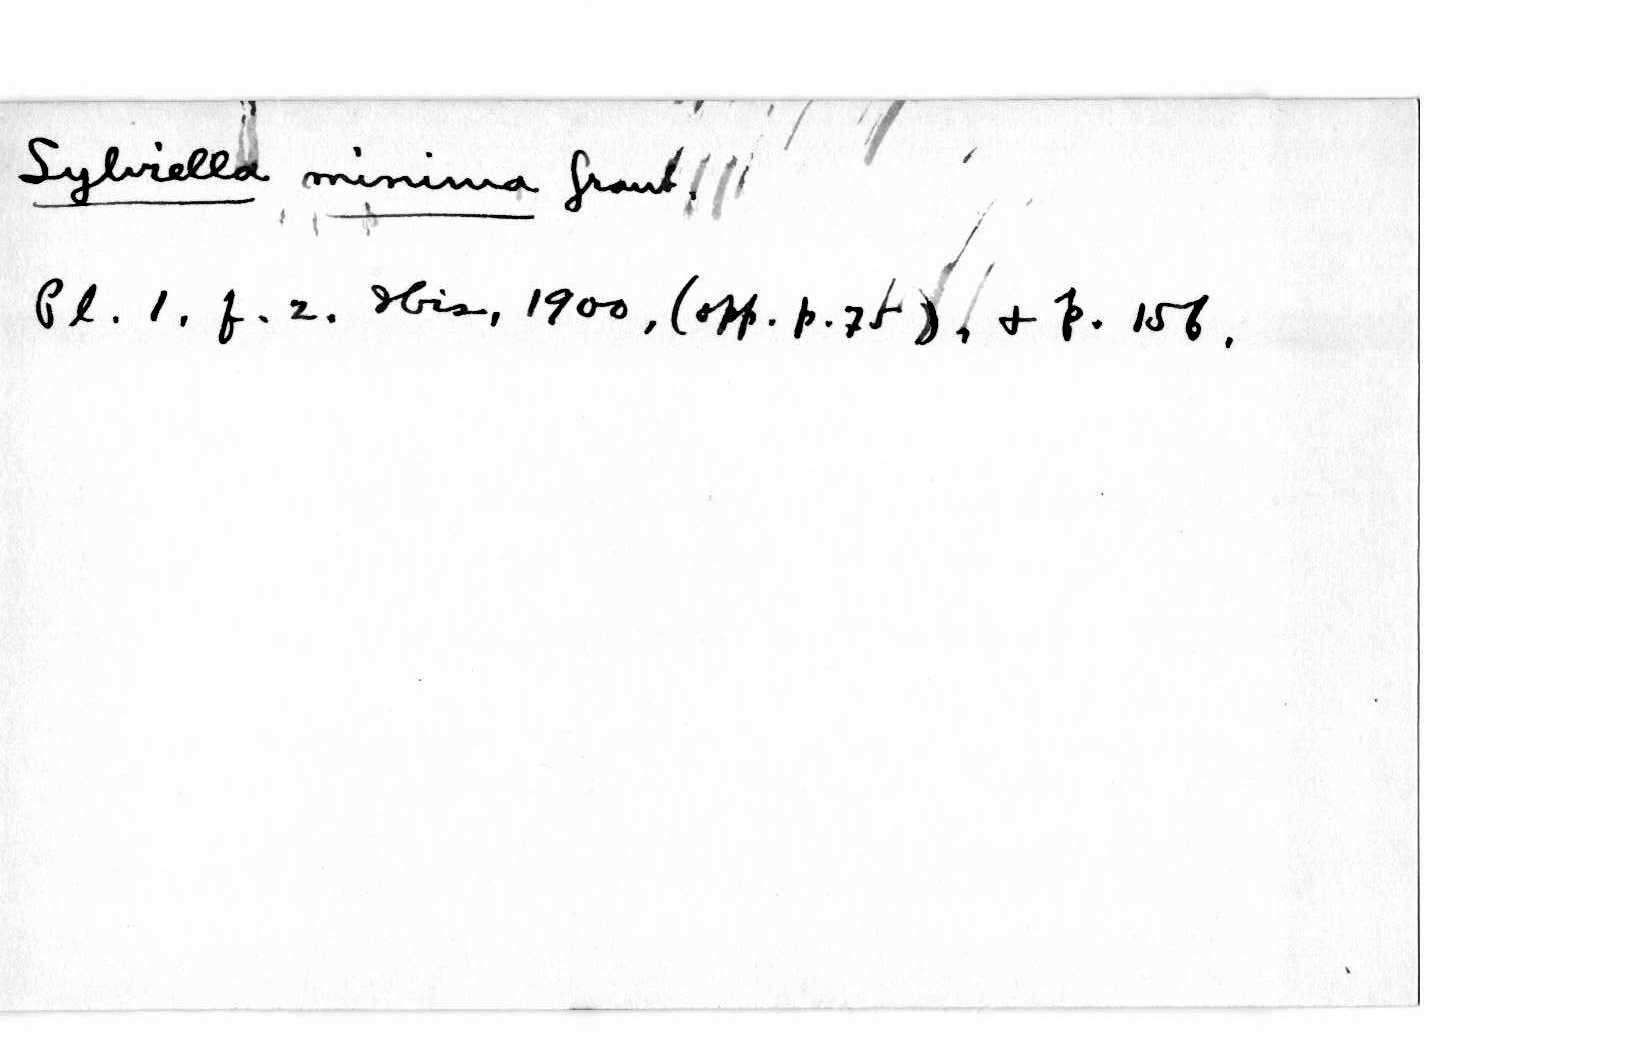 Sylviella minima Grant.
Pl. 1, f. 2. Ibis, 1900, (opp. p. 75), & p. 156.